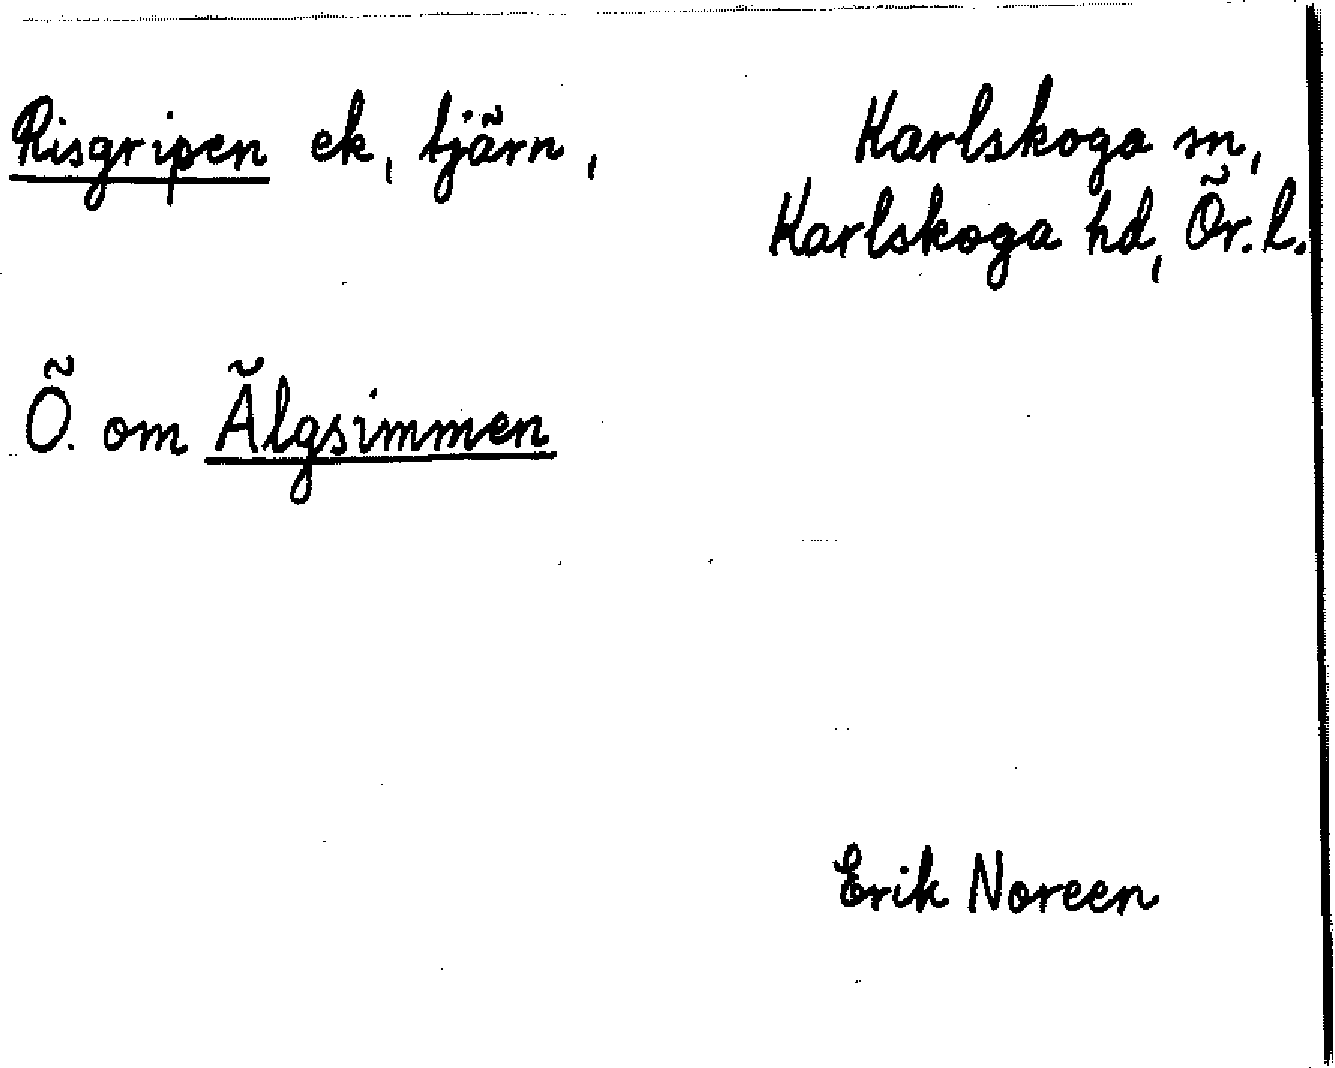 Risgripen ek, tjärn, Karlskoga sn,
Karlskoga hd, Ör. l.
Ö. om Älgsimmen
Erik Noreen